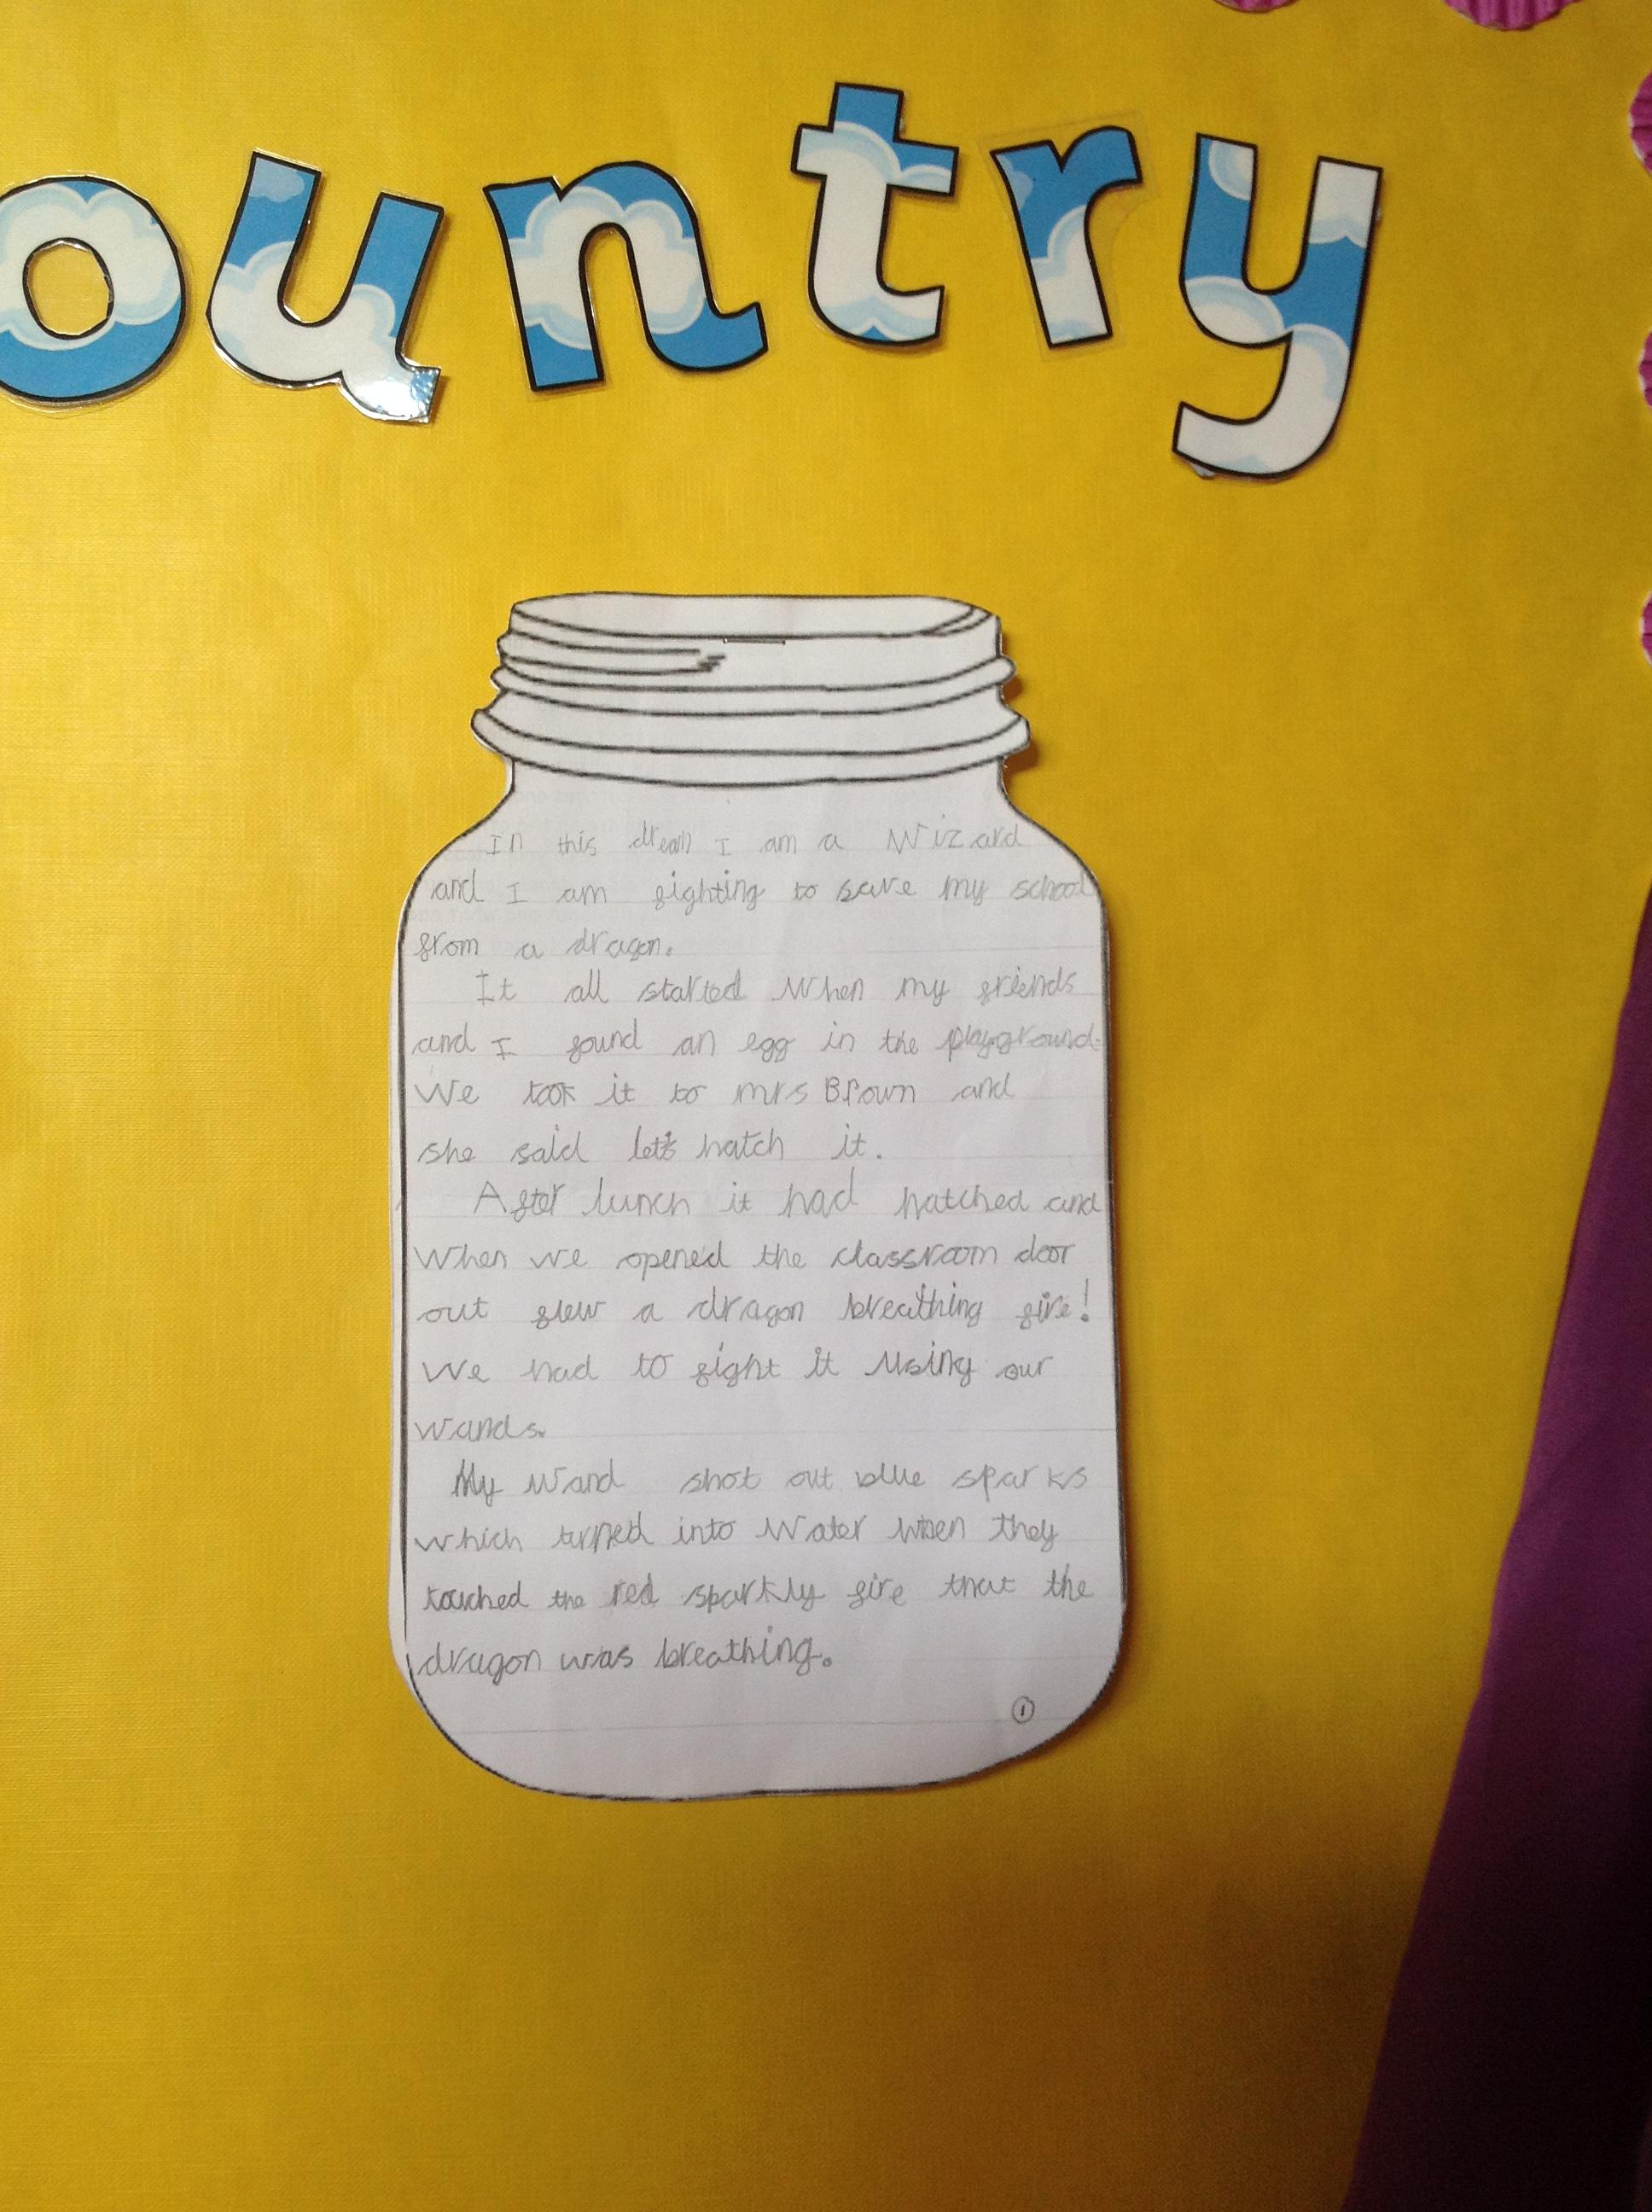 ountry
In this dream I am a Wizard
and I am fighting to save my school
from a dragon.
It all started When my friends
and I found an egg in the playground.
We took it to mrs Brown and
she said let's hatch it.
After lunch it had hatched and
When we opened the classroom door
out flew a dragon breathing fire!
We had to fight it using our
wands.
My Wand shot out blue sparks
which turned into Water when they
touched the red sparkly fire that the
dragon was breathing.
1